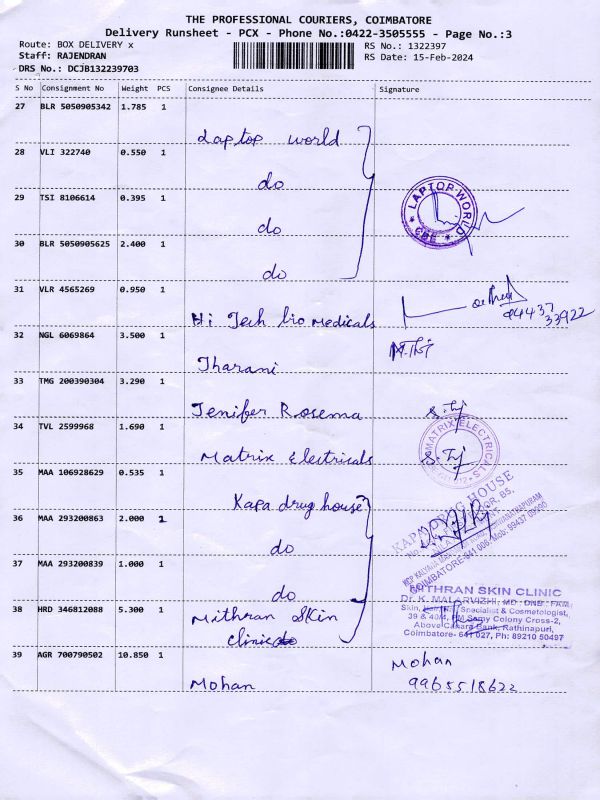 THE PROFESSIONAL COURIERS, COIMBATORE
Delivery Runsheet - PCX - Phone No.:0422-3505555 - Page No.:3
Route: BOX DELIVERY x
RS No.: 1322397
Staff: RAJENDRAN
RS Date: 15-Feb-2024
DRS No.: DCJB132239703
S No Consignment No Weight PCS Consignee Details Signature
27 BLR 5050905342 1.785 1
Laptop world
28 VLI 322740 0.550 1
do
29 TSI 8106614 0.395 1
LAPTOP WORLD
* CBE *
do
30 BLR 5050905625 2.400 1
do
31 VLR 4565269 0.950 1
Hi Tech bio medicals
94437
33922
32 NGL 6069864 3.500 1
Tharani
33 TMG 200390304 3.290 1
Jenifer Rosema
34 TVL 2599968 1.690 1
MATRIX ELECTRICALS
Matrix Electricals
35 MAA 106928629 0.535 1
Kapa drug house
KAPA DRUG HOUSE
36 MAA 293200863 2.000 1
do
COIMBATORE-641 006. Mob: 99437 09090
37 MAA 293200839 1.000 1
do
MITHRAN SKIN CLINIC
Dr. K. MALARVIZHI, MD., DNB., FAM.,
38 HRD 346812088 5.300 1
Mithran Skin
clinic
Skin, Specialist & Cosmetologist,
39 & 40/4, Samy Colony Cross-2,
Above Canara Bank, Rathinapuri,
Coimbatore- 641 027, Ph: 89210 50497
39 AGR 700790502 10.850 1
Mohan
Mohan
9965518622